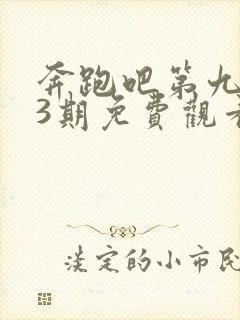 奔跑吧第九
3期免費觀看
淡定的小市民